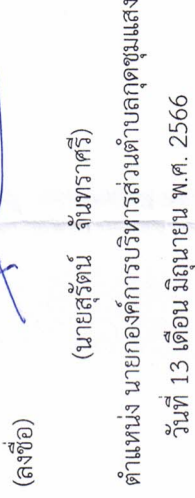 (ลงชื่อ)
(นายสุรัตน์ จันทราศรี)
ตำแหน่ง นายกองค์การบริหารส่วนตำบลกุดชุมแสง
วันที่ 13 เดือน มิถุนายน พ.ศ. 2566